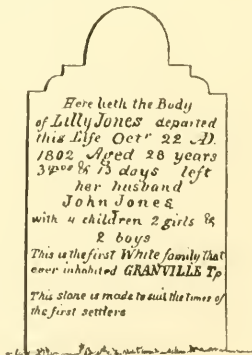 Here lieth the Body
of Lilly Jones departed
this Life Octr 22 AD.
1802 Aged 28 years
3 mos & 13 days left
her husband
John Jones
with 4 children 2 girls &
2 boys
This is the first White family that
ever inhabited GRANVILLE Tp
This stone is made to suit the times of
the first settlers